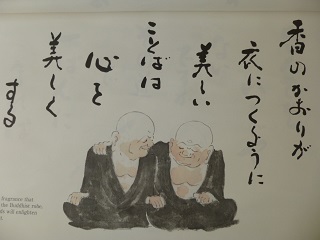 香のかおりが
衣につくように
美しい
ことばは
心を
美しく
する
fragrance that
the Buddhist robe,
ds will enlighten